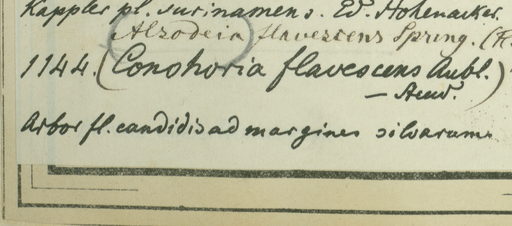 Kappler pl. surinamens. Ed. Hohenacker.
Alsodeia flavescens Spreng. (
1144. (Conohoria flavescens Aubl.
)
Arbor fl. candidis ad margines silvarum.